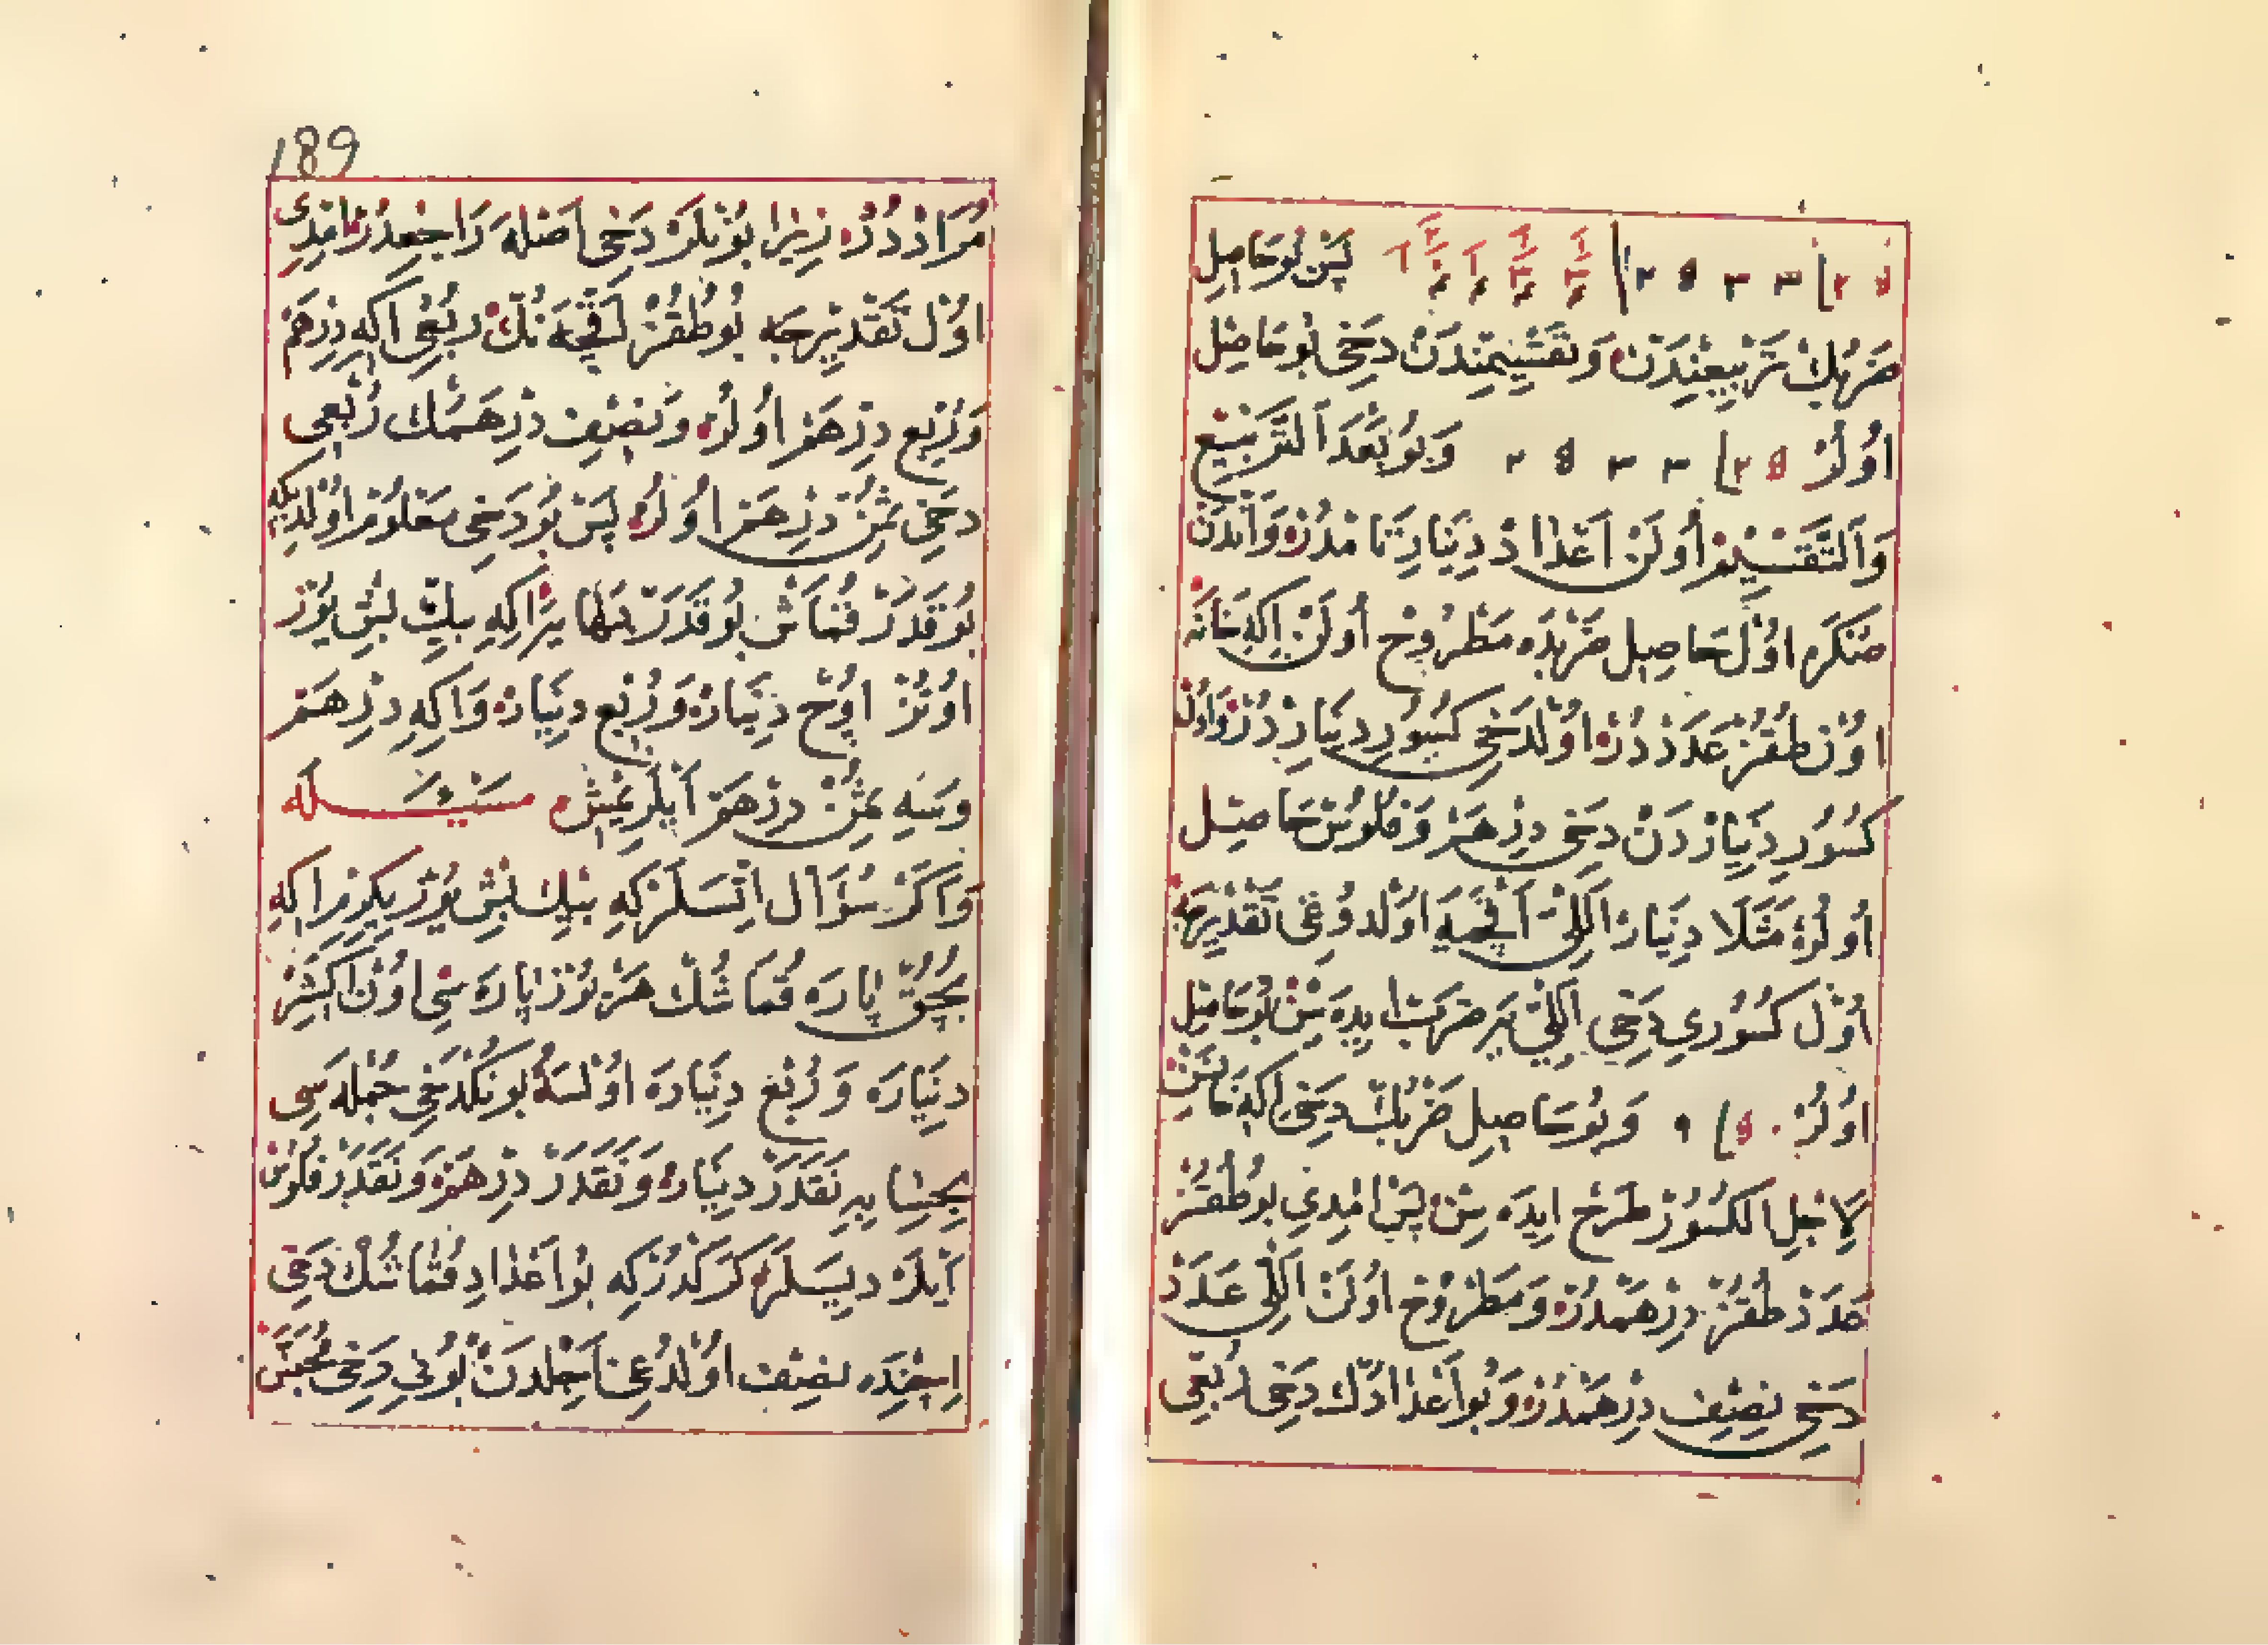 پس بو حاصل
ضربك تربيعندن و تقسيمندن دخی بو حاصل
اولر و بو بعد التربيع
والتقسيم اولن اعداد دينار تامدر و اندن
صكره اول حاصل ضربده مطروح اولن ايكه خانه
اون طقز عدددر اولدخی كسور ديناردر و اول
كسور ديناردن دخی درهم و فلوس حاصل
اولر مثلا دينار اللی اقچه اولدوغی تقديرجه
اول كسوری دخی اللی ير ضرب ايده سن بو حاصل
اولر و بو حاصل ضربك دخی ايكه خانه سن
لاجل الكسور طرح ايده سن پس امدی بو طقز
عدد طقز درهمدر و مطروح اولن اللی عدد
دخی نصف درهمدر و بو اعدادك دخی ربعی
189
مراددر زيرا بونلر دخی اصله راجعدر امدی
اول تقديرجه بو طقز اقچه نك ربعی ايكه درهم
و ربع درهم اولر و نصف درهمك ربعی
دخی ثمن درهم اولر پس بو دخی معلوم اولديكه
بو قدر قماش بو قدر بها يراكه بيك بش يوز
اوتز اوچ دينار و ربع دينار و ايكه درهم
وسه ثمن درهم ايلرمش مسئله
و اكر سؤال اتسلر كه بيك بش يوز يكرم ايكه
بچق پاره قماشك هر يوز پاره سی اون اكشر
دیناره و ربع ديناره اولسه بونكدخی جمله سی
بحساب نقدر دينار و نقدر درهم و نقدر فلوس
ايلر ديسلر كركدركه بو اعداد قماشك دخی
ايچنده نصف اولدغی اجلدن بونی دخی